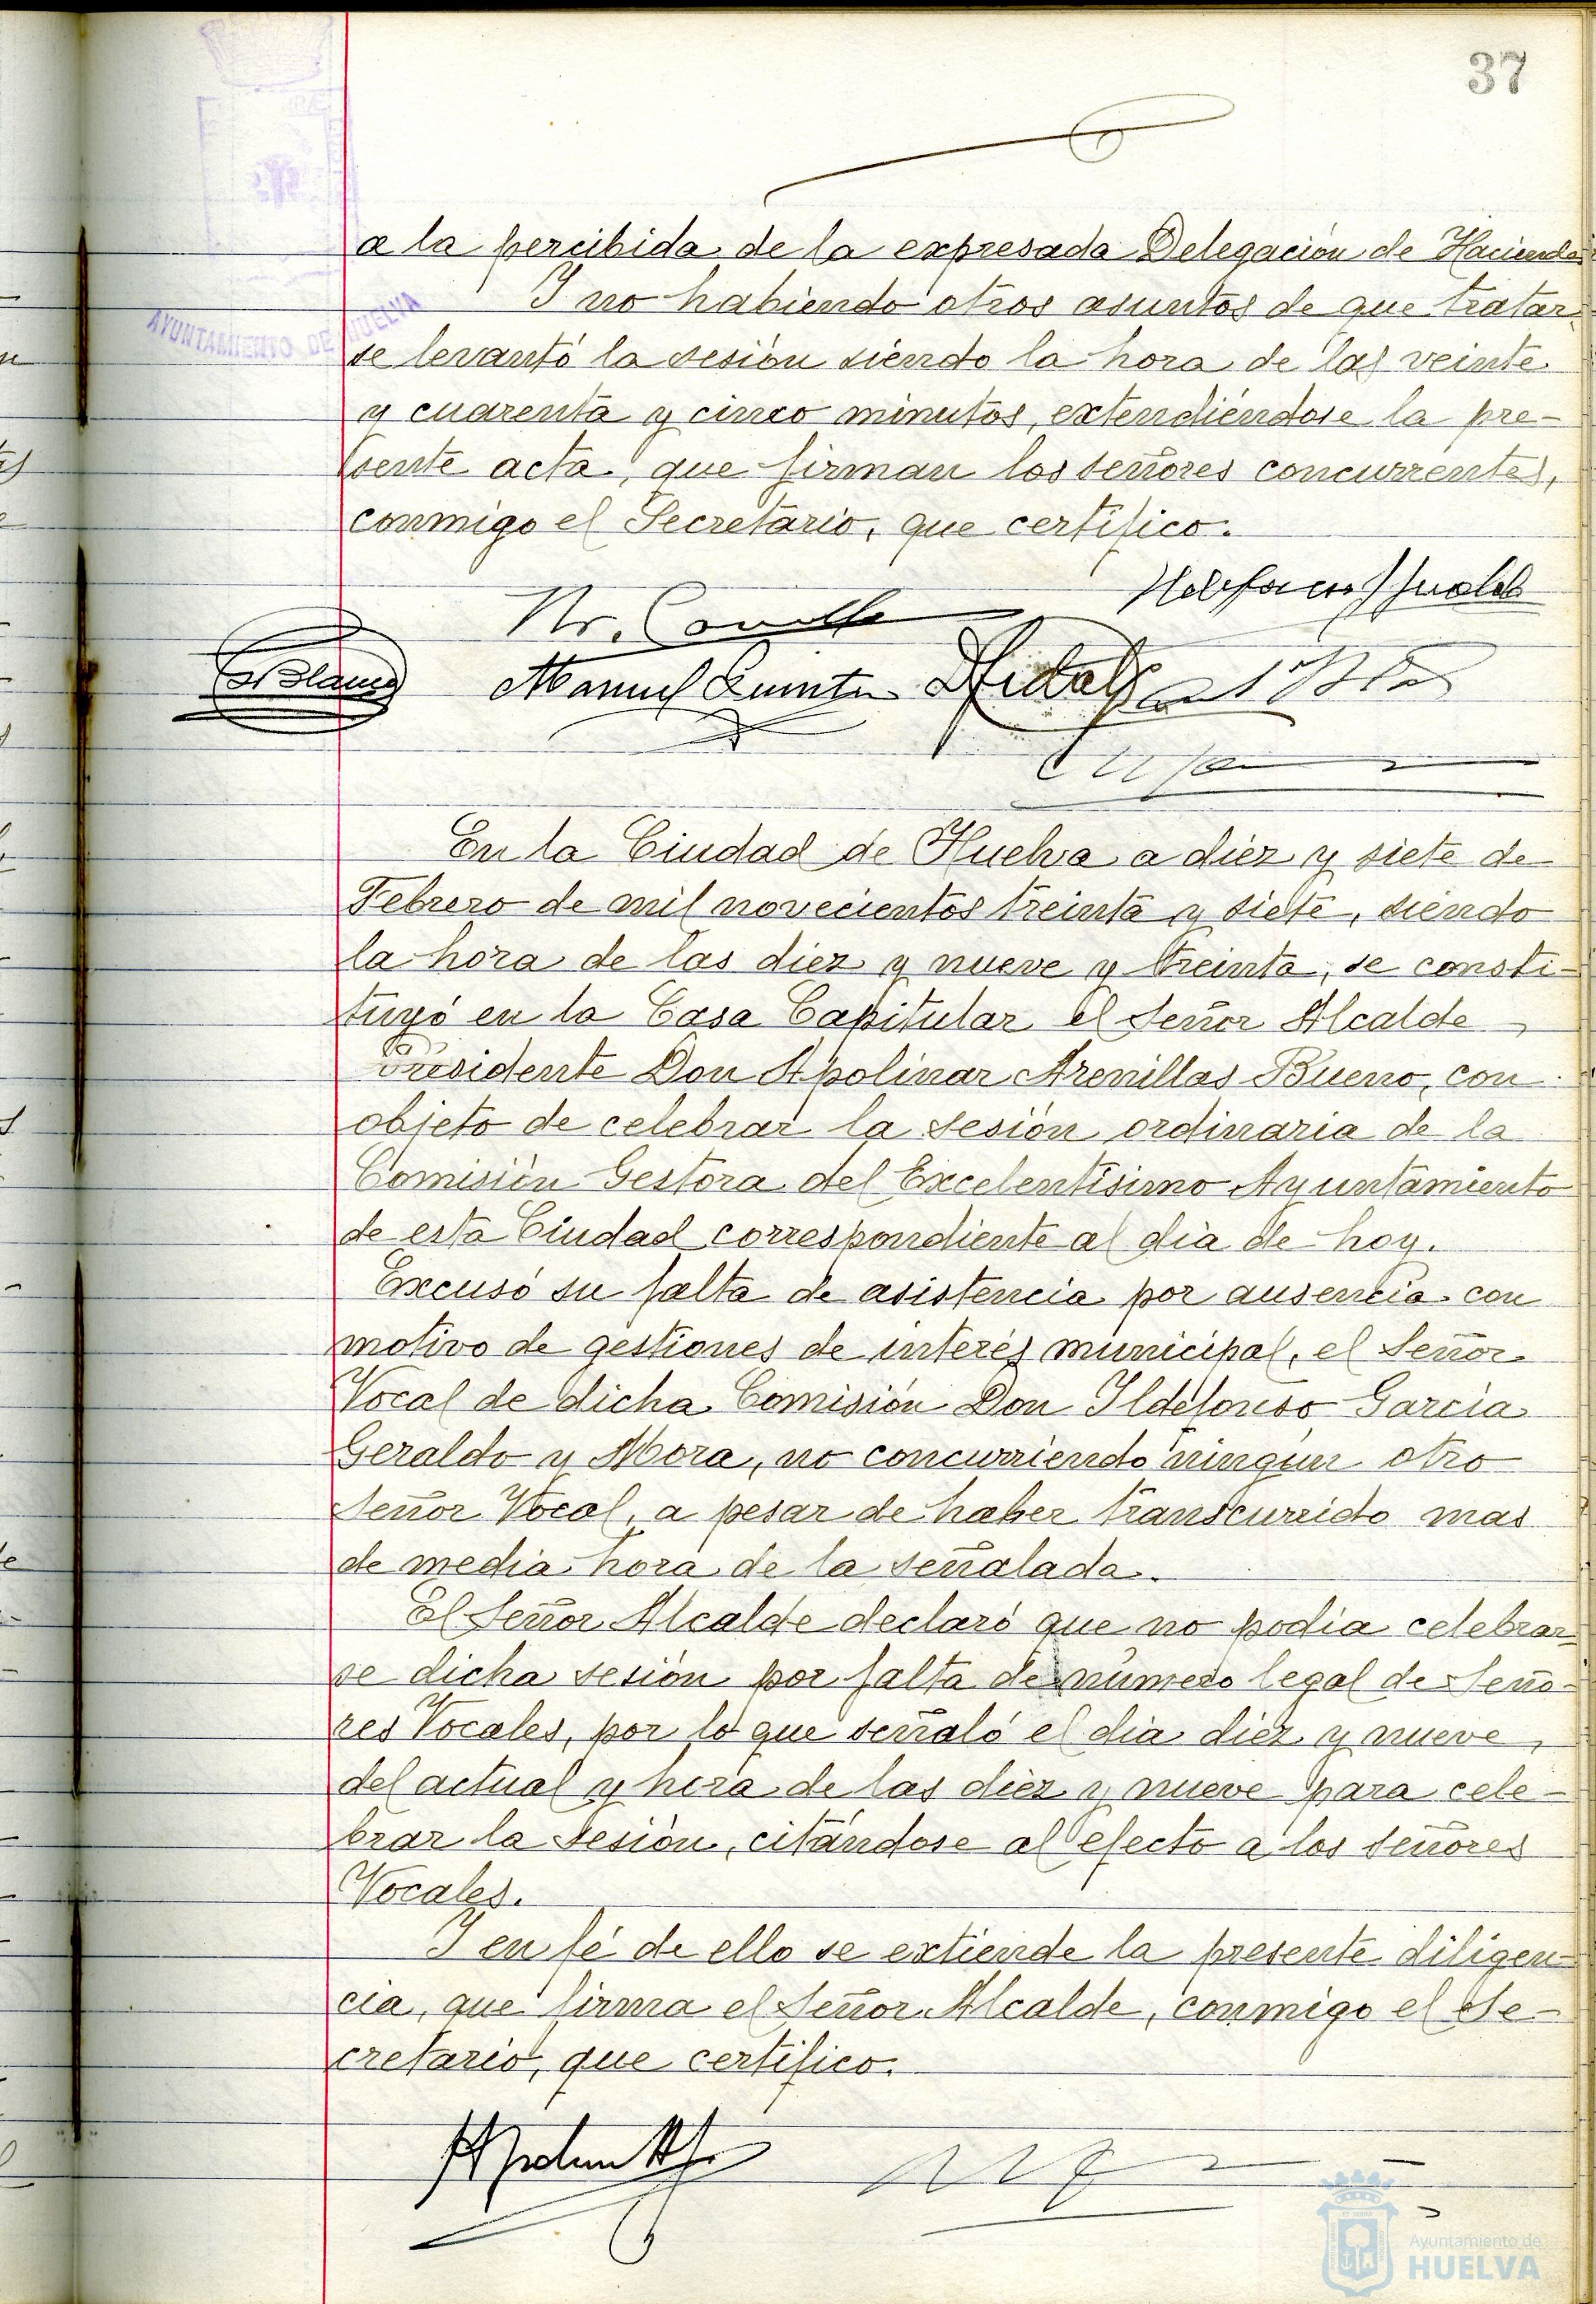 37
a la percibida de la expresada Delegación de Hacienda
Y no habiendo otros asuntos de que tratar
AYUNTAMIENTO DE HUELVA
se levantó la sesión siendo la hora de las veinte
y cuarenta y cinco minutos, extendiéndose la pre-
sente acta, que firman los señores concurrentes,
conmigo el Secretario, que certifico.
Manuel Quinta
En la Ciudad de Huelva a diez y siete de
Febrero de mil novecientos treinta y siete, siendo
la hora de las diez y nueve y treinta, se consti-
tuyó en la Casa Capitular el Señor Alcalde
Presidente Don Apolinar Arenillas Bueno, con
objeto de celebrar la sesión ordinaria de la
Comisión Gestora del Excelentísimo Ayuntamiento
de esta Ciudad correspondiente al día de hoy.
Excusó su falta de asistencia por ausencia con
motivo de gestiones de interés municipal, el Señor
Vocal de dicha Comisión Don Ildefonso García
Geraldo y Mora, no concurriendo ningún otro
Señor Vocal, a pesar de haber transcurrido mas
de media hora de la señalada.
El Señor Alcalde declaró que no podía celebrar-
se dicha sesión por falta de número legal de Seño-
res Vocales, por lo que señaló el día diez y nueve
del actual y hora de las diez y nueve para cele-
brar la sesión, citándose al efecto a los señores
Vocales.
Y en fé de ello se extiende la presente diligen-
cia, que firma el Señor Alcalde, conmigo el Se-
cretario, que certifico.
Ayuntamiento de
HUELVA